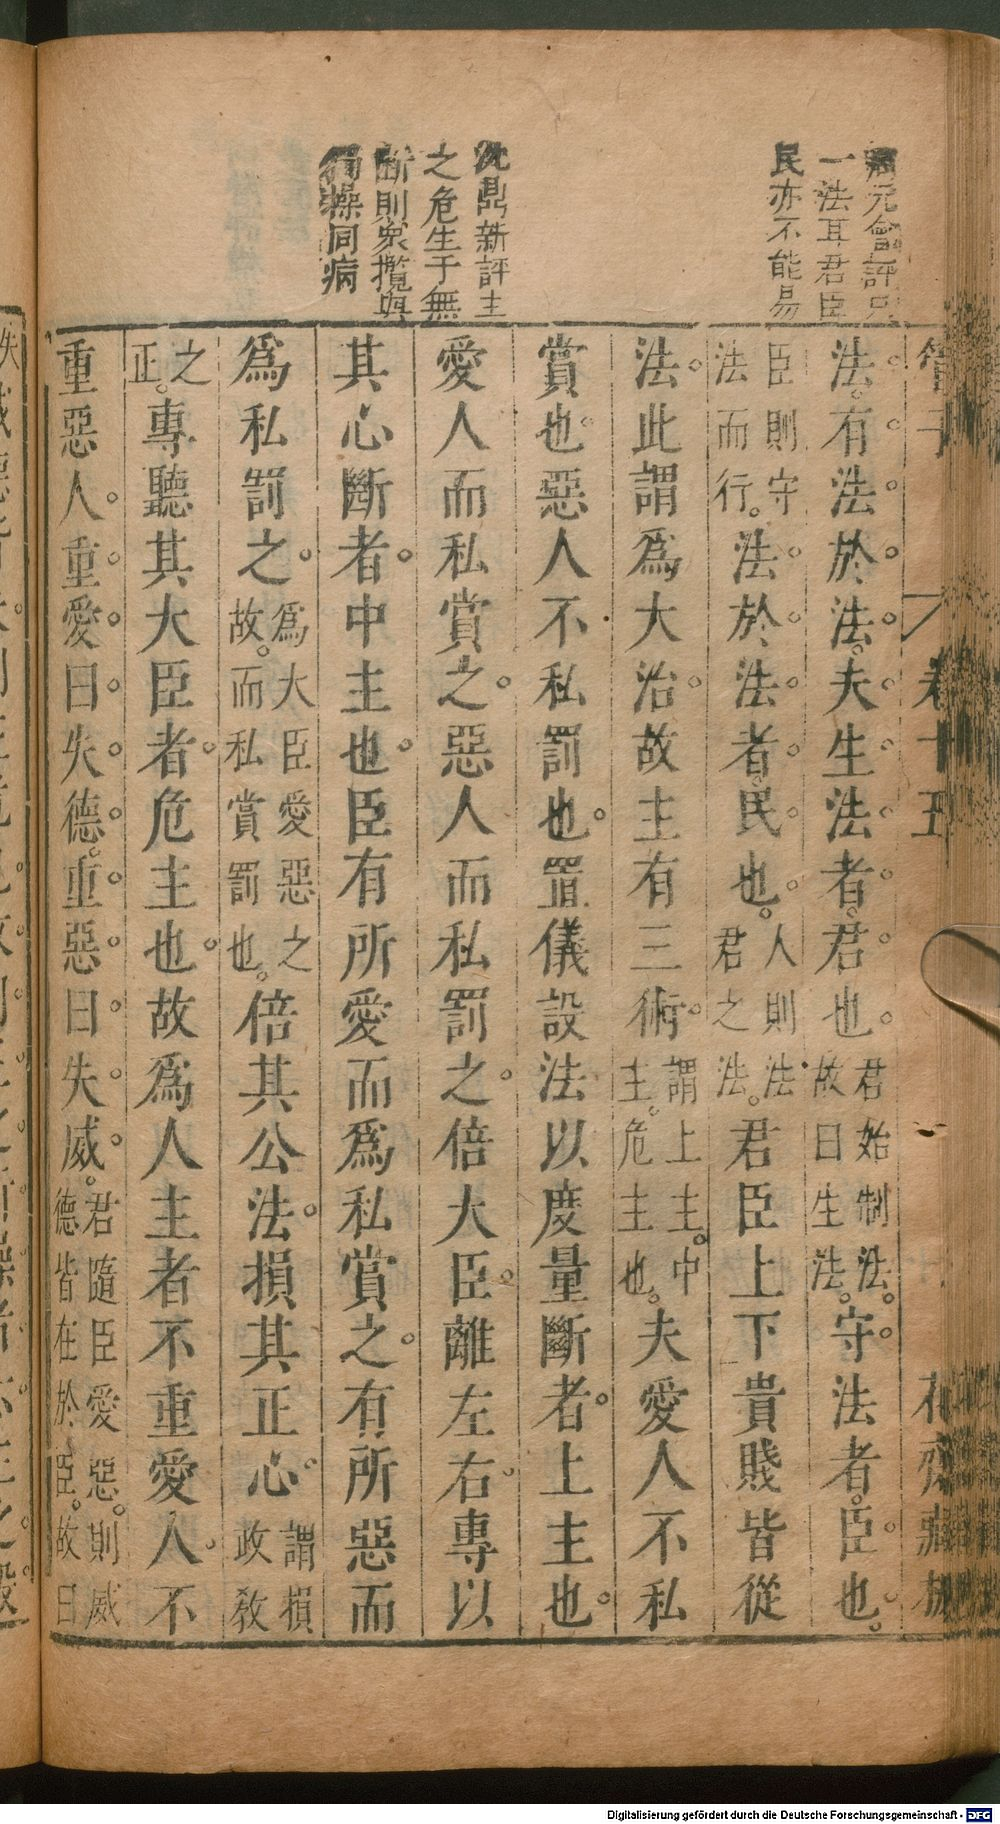 元會評只
一法耳君臣
民亦不能易
沈鼎新評主
之危生于無
斷則衆攬與
獨操同病
管子 卷十五 花齋藏板
法。有法於法。夫生法者。君也。君始制法。故曰生法。守法者。臣也。
臣則守法而行。法於法者。民也。人則法君之法。君臣上下貴賤皆從
法。此謂爲大治。故主有三術。謂上主。中主。危主也。夫愛人不私
賞也。惡人不私罰也。置儀設法以度量斷者。上主也。
愛人而私賞之。惡人而私罰之。倍大臣。離左右。專以
其心斷者。中主也。臣有所愛而爲私賞之。有所惡而
爲私罰之。爲大臣愛惡之故。而私賞罰也。倍其公法。損其正心。謂損政教
之正。專聽其大臣者。危主也。故爲人主者。不重愛人。不
重惡人。重愛曰失德。重惡曰失威。君隨臣愛惡。則威德皆在於臣。故曰
Digitalisierung gefördert durch die Deutsche Forschungsgemeinschaft - DFG